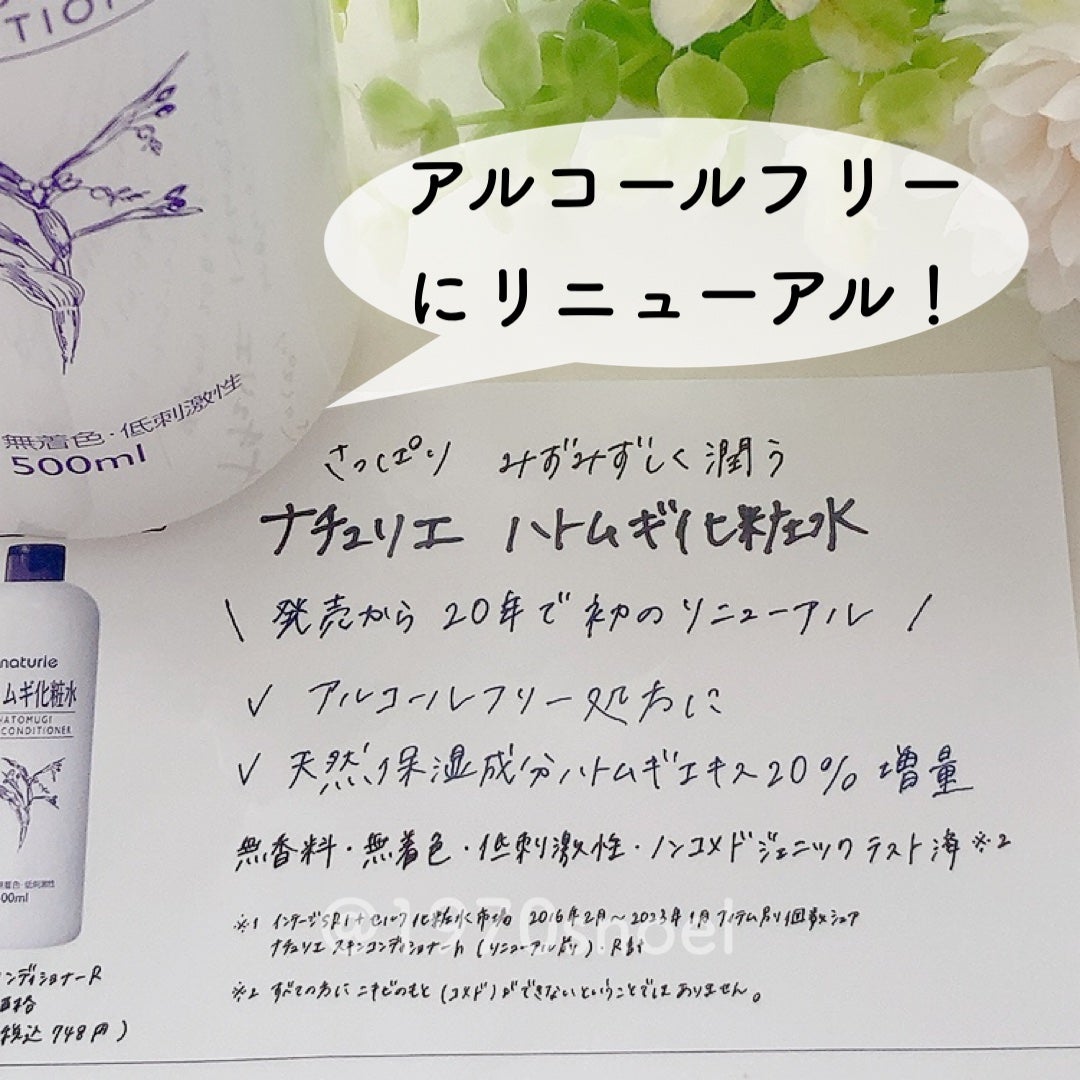 TION
アルコールフリー
にリニューアル!
無着色・低刺激性
500ml
さっぱり みずみずしく潤う
ナチュリエ ハトムギ化粧水
\ 発売から 20年で初のリニューアル /
✓ アルコールフリー処方に
✓ 天然保湿成分ハトムギエキス20%増量
無香料・無着色・低刺激性・ノンコメドジェニックテスト済※2
※1 インテージSRI+ 化粧水市場 2016年2月〜2023年1月アイテム別個数シェア
ナチュリエ スキンコンディショナーh(リニューアル前)・R計
※2 すべての方にニキビのもと(コメド)ができないということではありません。
naturie
ムギ化粧水
HATOMUGI
CONDITIONER
無着色・低刺激性
500ml
ンディショナーR
価格
税込 748円)
@1970snoel